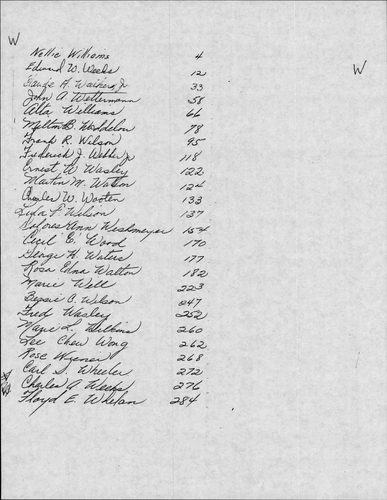 W
W
Nellie Williams 4
Edward W. Weeks 12
George H. Waikens, Jr 33
John A. Wettermann 58
Alta Williams 66
Melton B. Worldelon 78
Frank R. Wilson 95
Frederick J Webber Jr 118
Ernest W Wasley 122
Martin M. Walton 124
Charles W. Wooten 133
Lula F. Wilson 137
Delores Ann Weishmeyer 154
Cecil E. Wood 170
George H. Waters 177
Rosa Edna Walton 182
Marie Well 223
Bessie C. Wilson 247
Fred Wasley 252
Marie L. Wilkins 260
Lee Chew Wong 262
Rose 268
Carl S. Wheeler 272
Charles A Weeks 276
Floyd E. Whelan 284